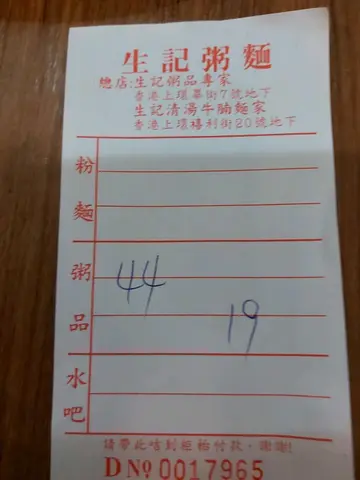 生記粥麵
總店:生記粥品專家
香港上環畢街7號地下
生記清湯牛腩麵家
香港上環禧利街20號地下
粉麵
粥品
44
19
水吧
請帶此咭到柜枱付款，謝謝!
D No 0017965